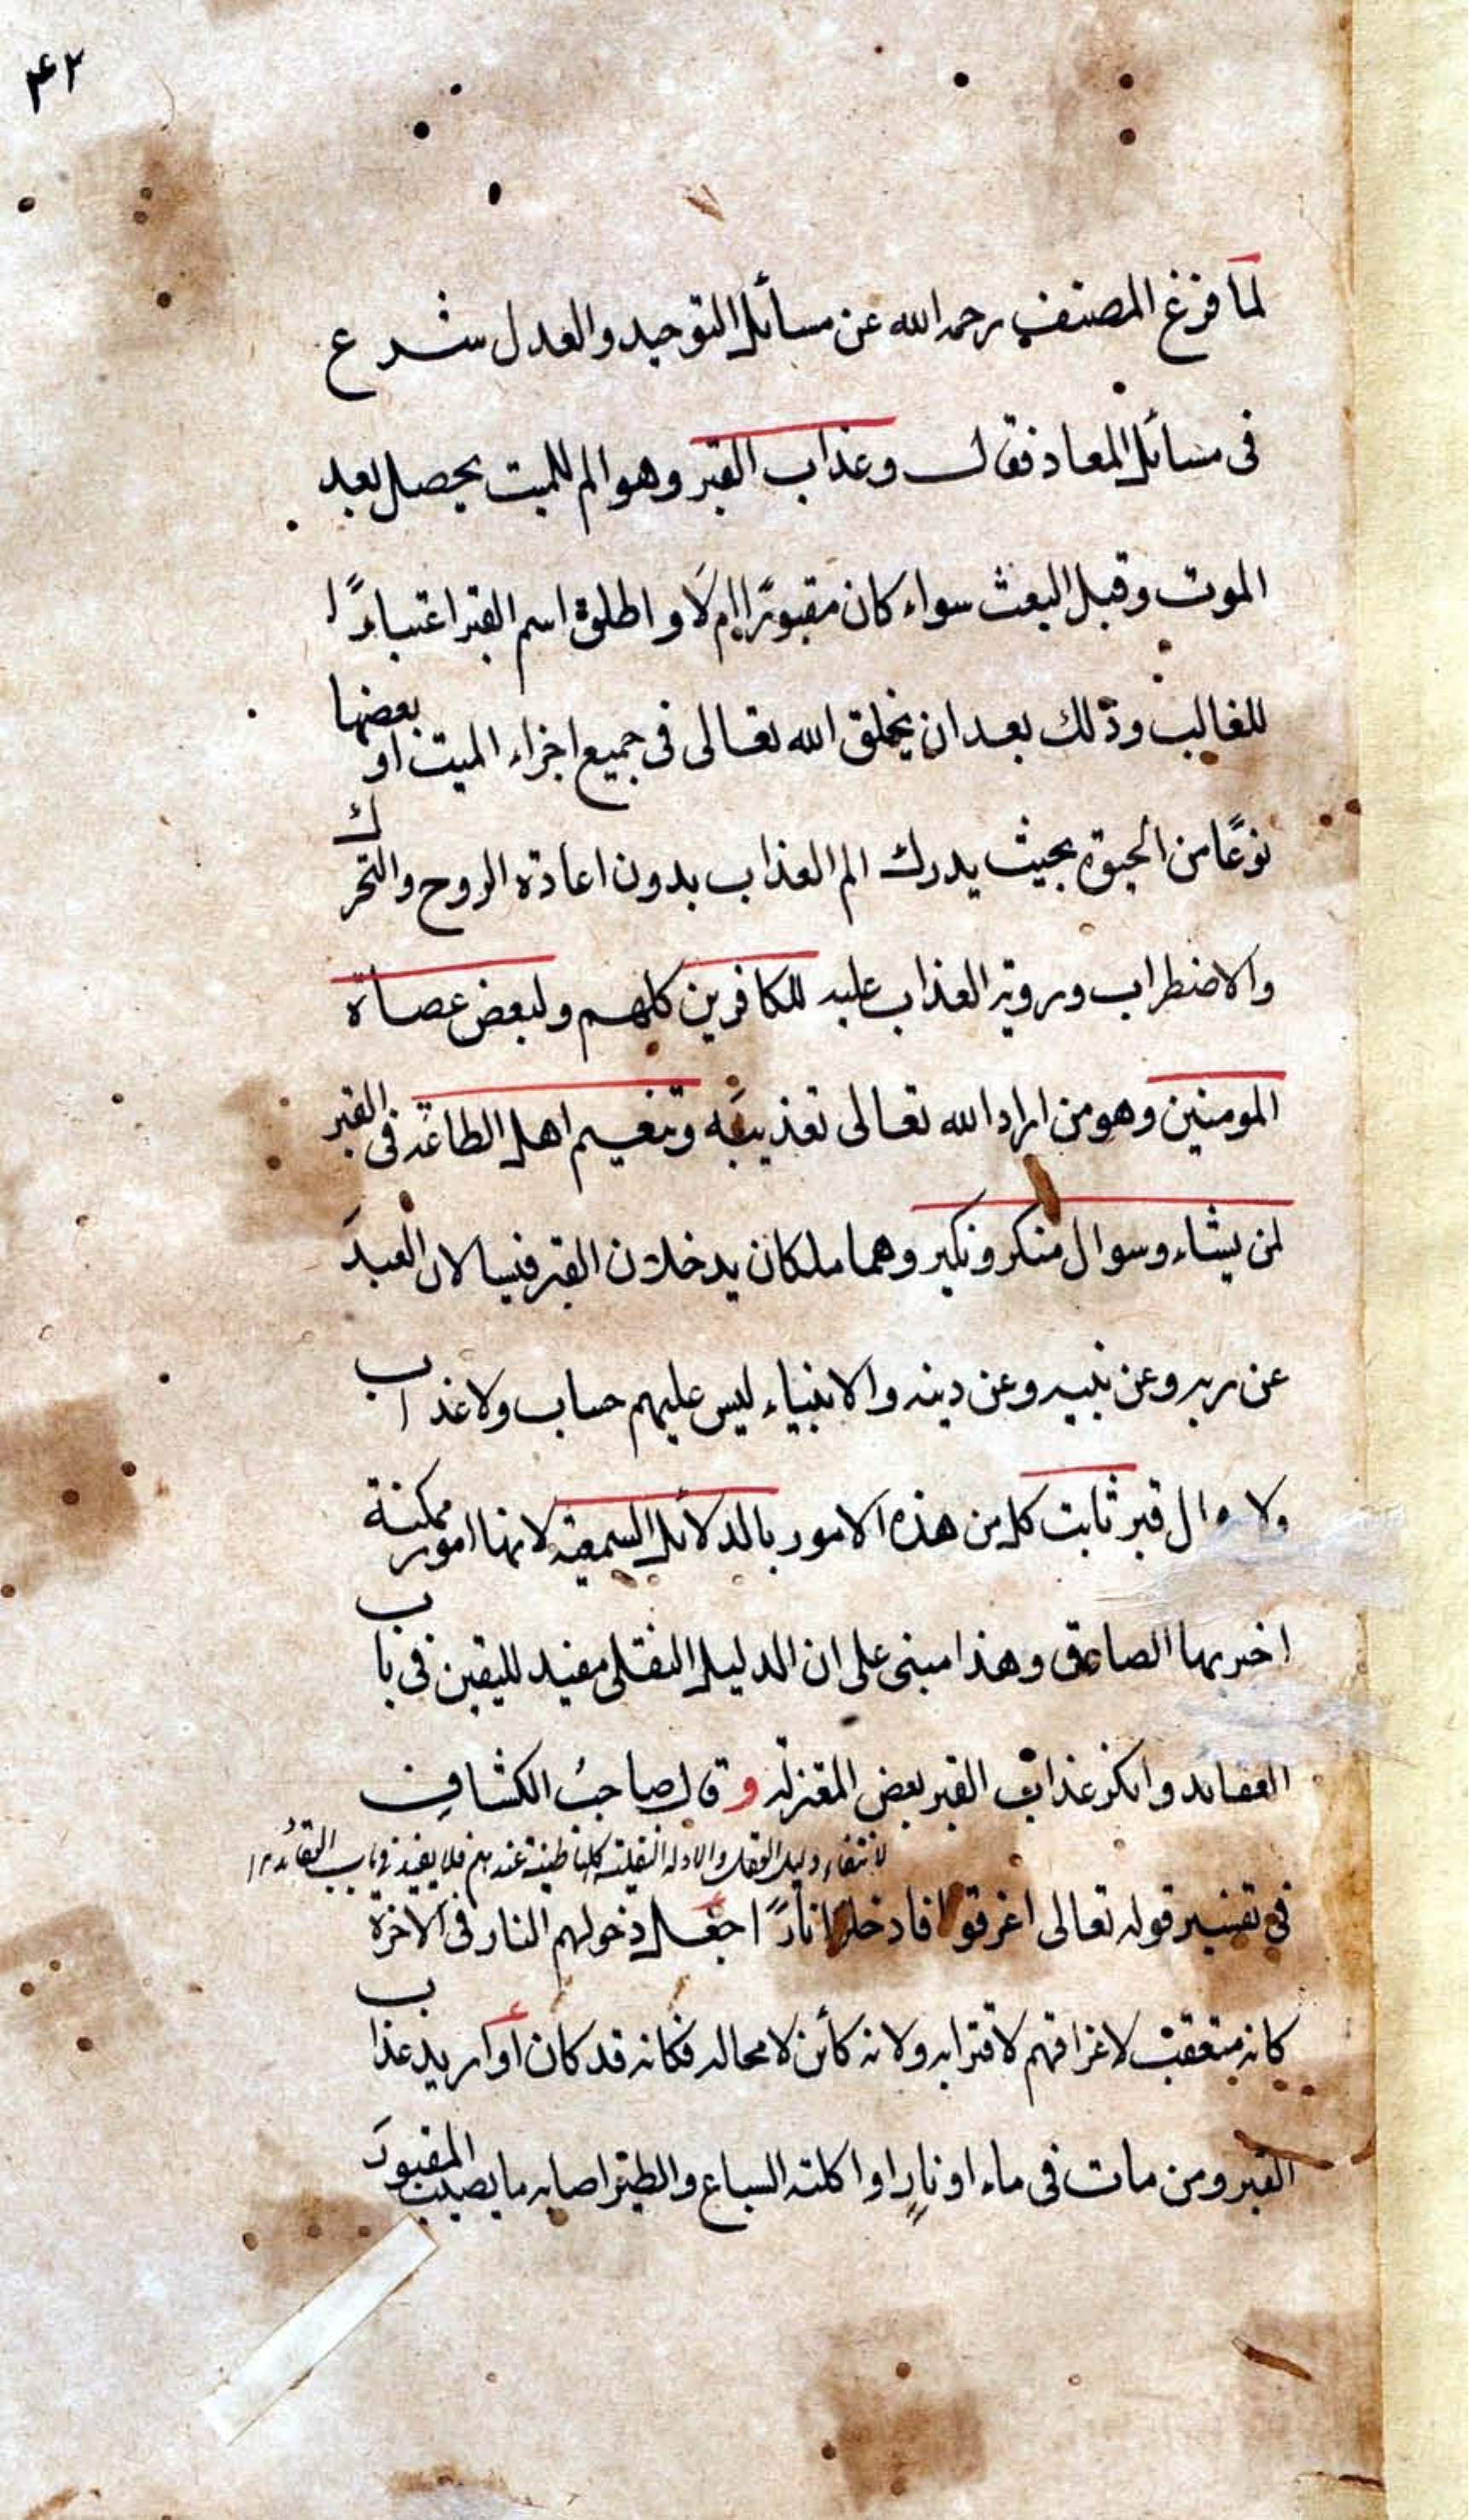 ۴۲
لما فرغ المصنف رحمه الله عن مسائل التوحيد والعدل شرع
فى مسائل المعاد فقال وعذاب القبر وهو الم للميت يحصل بعد
الموت وقبل البعث سواء كان مقبورًا ام لَا و اطلق اسم القبر اعتبارًا
للغالب وذلك بعد ان يخلق الله تعالى فى جميع اجزاء الميت او بعضها
نوعًا من الحيوة بحيث يدرك الم العذاب بدون اعادة الروح والتحرك
والاضطراب وروية العذاب عليه للكافرين كلهم ولبعض عصاة
المومنين وهو من اراد الله تعالى تعذيبَه وتنعيم اهل الطاعة فى القبر
لمن يشاء وسوال منكر ونكير وهما ملكان يدخلان القبر فيسالان العبدَ
عن ربه وعن نبيه وعن دينه والانبياء ليس عليهم حساب ولا عذاب
ولا سوال قبر ثابت كل من هذه الامور بالدلائل السمعية لانها امور ممكنة
اخبر بها الصادق وهذا مبنى على ان الدليل النقلى مفيد لليقين فى باب
العقائد وانكر عذاب القبر بعض المعتزلة و قال صاحبُ الكشاف
لانتفاء دليل العقل والادلة النقلية كلها ظنية عندهم فلا يفيد فى باب العقائد
فى تفسير قوله تعالى اغرقوا فادخلوا نارًا جعل دخولهم النار فى الاخرة
كانه متعقب لاغراقهم لاقترابه ولانه كأئن لا محالة فكانه قد كان أو اريد عذاب
القبر ومن مات فى ماء او نارٍ او اكلته السباع والطير اصابه ما يصيب المقبورَ